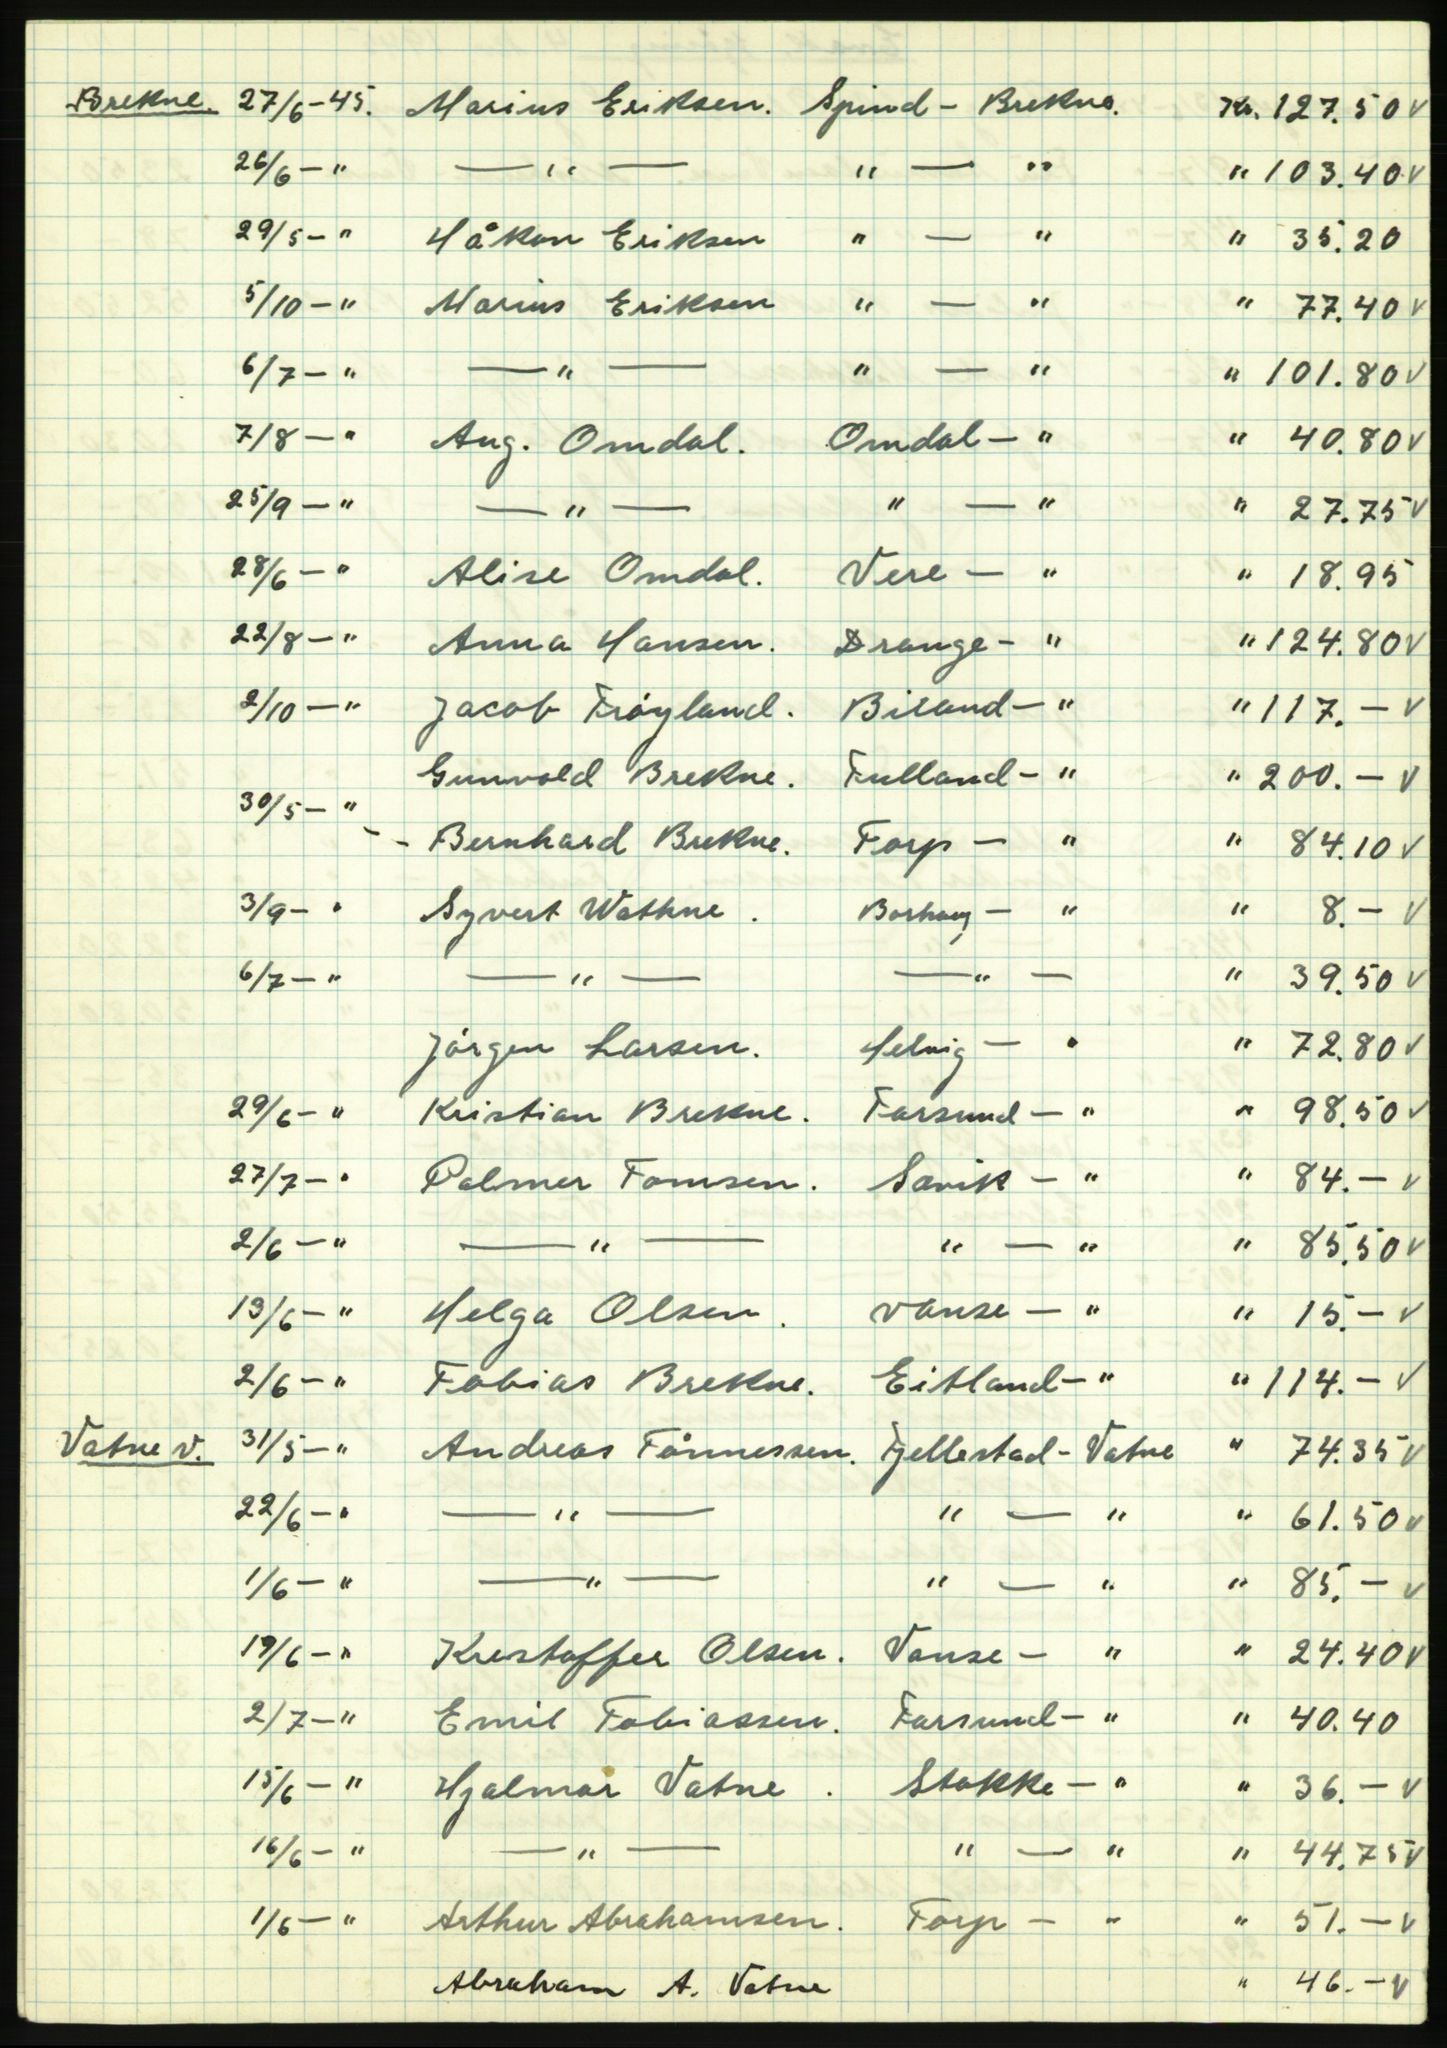 Brekne. 27/6-45. Marius Eriksen. Spind - Brekne. Kr. 127.50 v
26/6 - " — " — " — " " 103.40 v
29/5 - " Håkon Eriksen " — " " 35.20
5/10 - " Marius Eriksen " — " " 77.40 v
6/7 - " — " — " — " " 101.80 v
7/8 - " Aug. Omdal. Omdal - " " 40.80 v
25/9 - " — " — " — " " 27.75 v
28/6 - " Alise Omdal. Vere - " " 18.95
22/8 - " Anna Hansen. Drange - " " 124.80 v
2/10 - " Jacob Frøyland. Biland - " " 117.- v
Gunvald Brekne. Fulland - " " 200.- v
30/5 - "
- Bernhard Brekne. Torp - " " 84.10 v
3/9 - " Syvert Wathne. Borhaug - " " 8.- v
6/7 - " — " — — " — " 39.50 v
Jørgen Larsen. Helvig - " " 72.80 v
29/6 - " Kristian Brekne. Farsund - " " 98.50 v
27/7 - " Palmer Tomsen. Sævik - " " 84.- v
2/6 - " — " — " — " " 85.50 v
13/6 - " Helga Olsen. Vanse - " " 15.- v
2/6 - " Tobias Brekne. Eitland - " " 114.- v
Vatne v. 31/5 - " Andreas Tønnessen. Fjellestad - Vatne " 74.35 v
22/6 - " — " — " — " " 61.50 v
1/6 - " — " — " — " " 85.- v
19/6 - " Krestoffer Olsen. Vanse - " " 24.40 v
2/7 - " Emil Tobiassen. Farsund - " " 40.40
15/6 - " Hjalmar Vatne. Stokke - " " 36.- v
16/6 - " — " — " — " " 44.75 v
1/6 - " Arthur Abrahamsen. Torp - " " 51.- v
Abraham A. Vatne " 46.- v